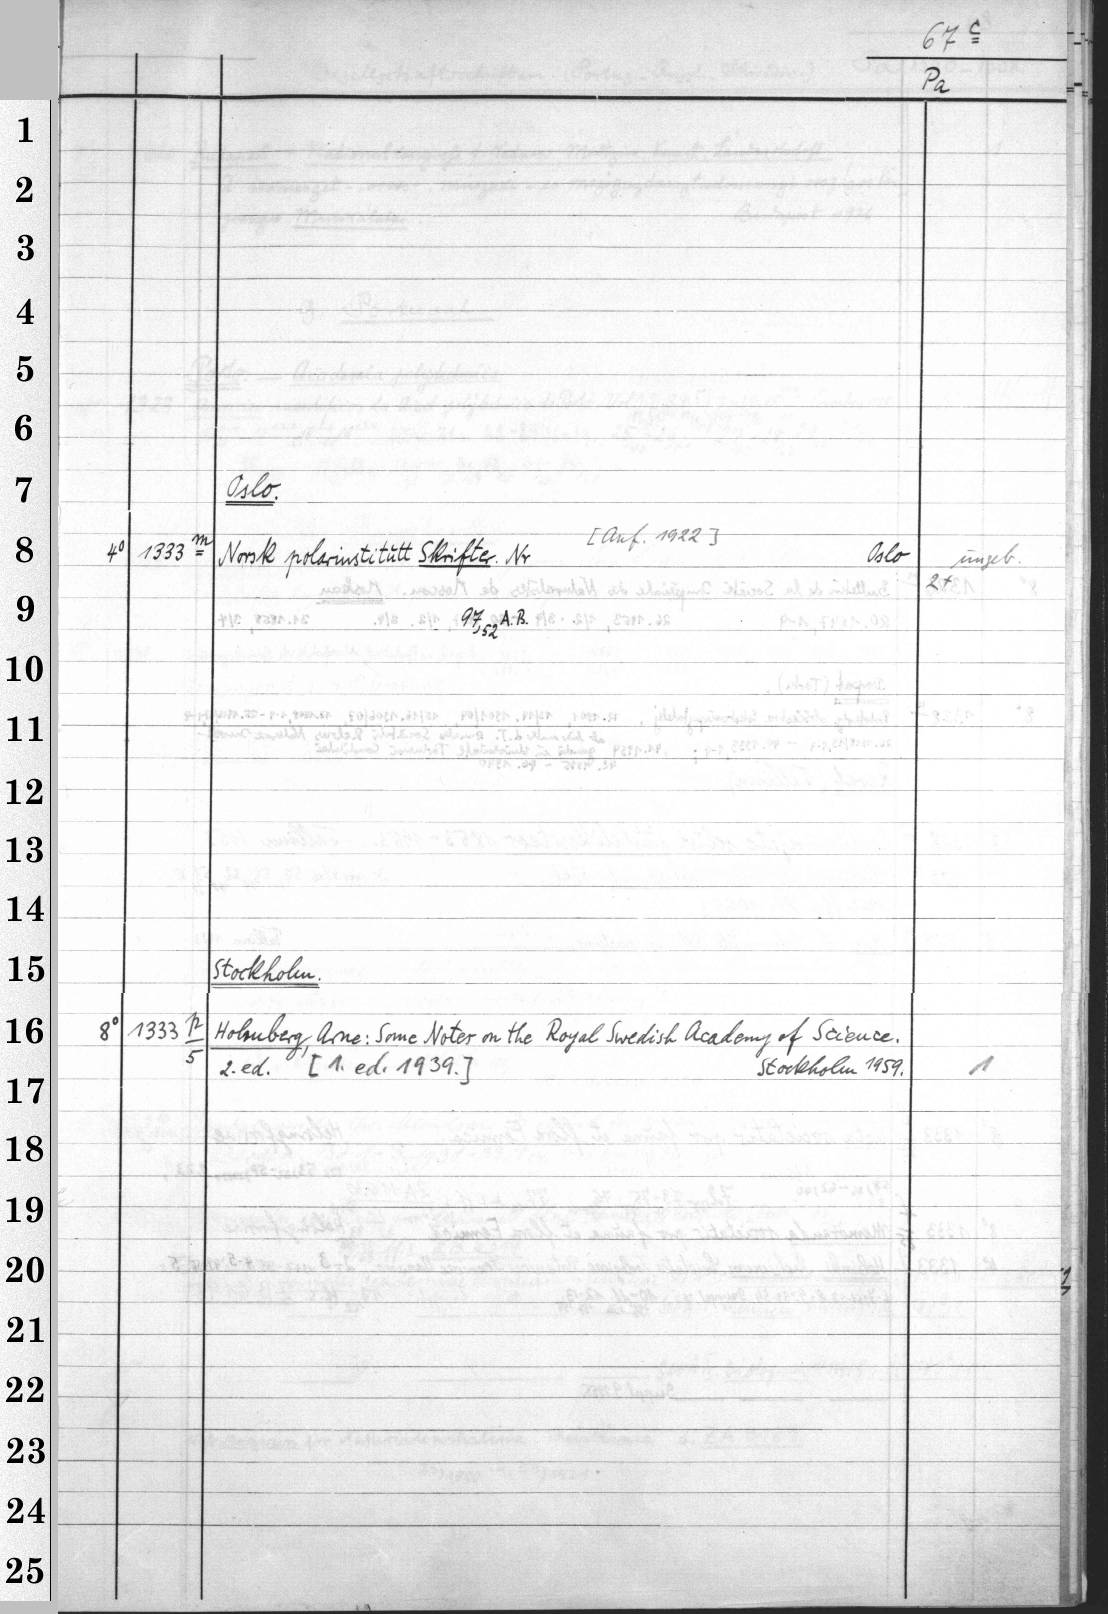 67 c
Pa
1
2
3
4
5
6
7 Oslo.
[Anf. 1922]
8 4° 1333 m Norsk polarinstitutt Skrifter. Nr Oslo ungeb.
2+
9 97,52 A.B.
10
11
12
13
14
15 Stockholm.
16 8° 1333 p/5 Holmberg, Arne: Some Notes on the Royal Swedish Academy of Science.
2. ed. [1. ed. 1939.] Stockholm 1959. 1
17
18
19
20
21
22
23
24
25